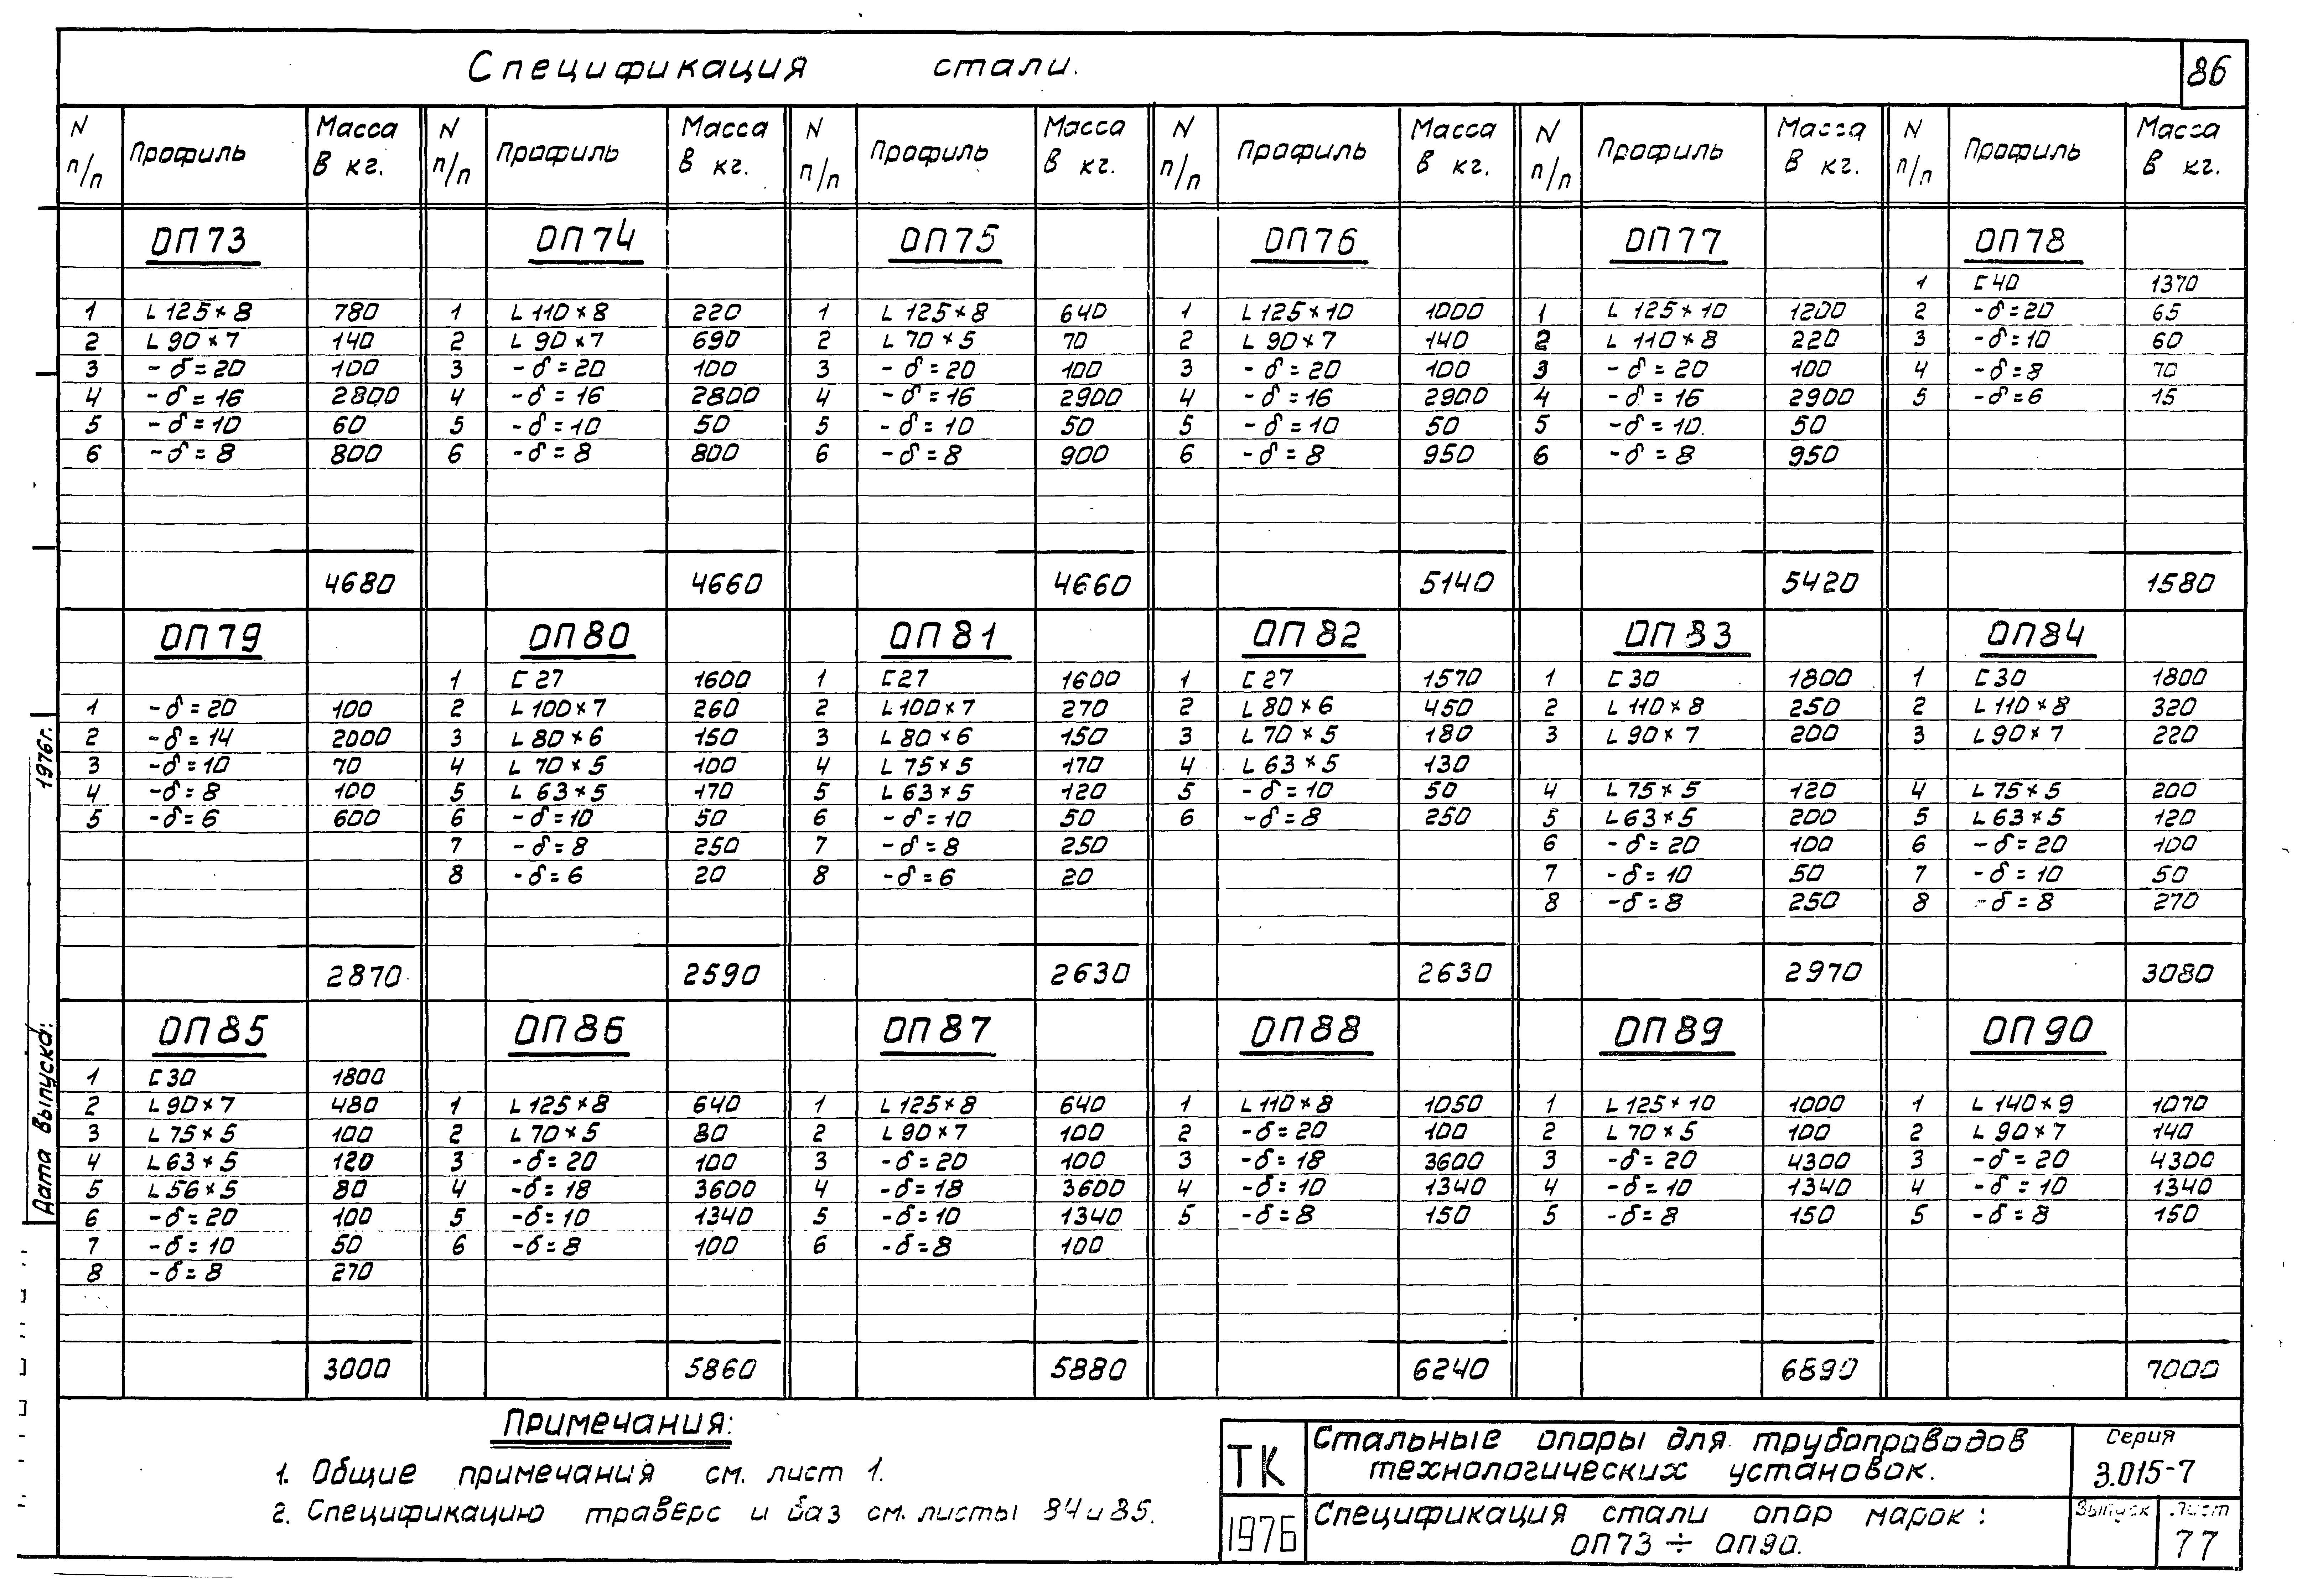 Спецификация стали.
86
N п/п Профиль Масса в кг. N п/п Профиль Масса в кг. N п/п Профиль Масса в кг. N п/п Профиль Масса в кг. N п/п Профиль Масса в кг. N п/п Профиль Масса в кг.
ОП73 ОП74 ОП75 ОП76 ОП77 ОП78
1 [40 1370
1 L125×8 780 1 L110×8 220 1 L125×8 640 1 L125×10 1000 1 L125×10 1200 2 -δ=20 65
2 L90×7 140 2 L90×7 690 2 L70×5 70 2 L90×7 140 2 L110×8 220 3 -δ=10 60
3 -δ=20 100 3 -δ=20 100 3 -δ=20 100 3 -δ=20 100 3 -δ=20 100 4 -δ=8 70
4 -δ=16 2800 4 -δ=16 2800 4 -δ=16 2900 4 -δ=16 2900 4 -δ=16 2900 5 -δ=6 15
5 -δ=10 60 5 -δ=10 50 5 -δ=10 50 5 -δ=10 50 5 -δ=10. 50
6 -δ=8 800 6 -δ=8 800 6 -δ=8 900 6 -δ=8 950 6 -δ=8 950
4680 4660 4660 5140 5420 1580
ОП79 ОП80 ОП81 ОП82 ОП83 ОП84
1 [27 1600 1 [27 1600 1 [27 1570 1 [30 1800 1 [30 1800
1 -δ=20 100 2 L100×7 260 2 L100×7 270 2 L80×6 450 2 L110×8 250 2 L110×8 320
2 -δ=14 2000 3 L80×6 150 3 L80×6 150 3 L70×5 180 3 L90×7 200 3 L90×7 220
3 -δ=10 70 4 L70×5 100 4 L75×5 170 4 L63×5 130
4 -δ=8 100 5 L63×5 170 5 L63×5 120 5 -δ=10 50 4 L75×5 120 4 L75×5 200
5 -δ=6 600 6 -δ=10 50 6 -δ=10 50 6 -δ=8 250 5 L63×5 200 5 L63×5 120
7 -δ=8 250 7 -δ=8 250 6 -δ=20 100 6 -δ=20 100
8 -δ=6 20 8 -δ=6 20 7 -δ=10 50 7 -δ=10 50
8 -δ=8 250 8 -δ=8 270
2870 2590 2630 2630 2970 3080
ОП85 ОП86 ОП87 ОП88 ОП89 ОП90
1 [30 1800
2 L90×7 480 1 L125×8 640 1 L125×8 640 1 L110×8 1050 1 L125×10 1000 1 L140×9 1070
3 L75×5 100 2 L70×5 80 2 L90×7 100 2 -δ=20 100 2 L70×5 100 2 L90×7 140
4 L63×5 120 3 -δ=20 100 3 -δ=20 100 3 -δ=18 3600 3 -δ=20 4300 3 -δ=20 4300
5 L56×5 80 4 -δ=18 3600 4 -δ=18 3600 4 -δ=10 1340 4 -δ=10 1340 4 -δ=10 1340
6 -δ=20 100 5 -δ=10 1340 5 -δ=10 1340 5 -δ=8 150 5 -δ=8 150 5 -δ=8 150
7 -δ=10 50 6 -δ=8 100 6 -δ=8 100
8 -δ=8 270
3000 5860 5880 6240 6890 7000
Примечания:
1. Общие примечания см. лист 1.
2. Спецификацию траверс и баз см. листы 84 и 85.
ТК
1976
Стальные опоры для трубопроводов
технологических установок.
Спецификация стали опор марок:
ОП73 ÷ ОП90.
Серия
3.015-7
Выпуск
Лист
77
Дата выпуска: 1976г.